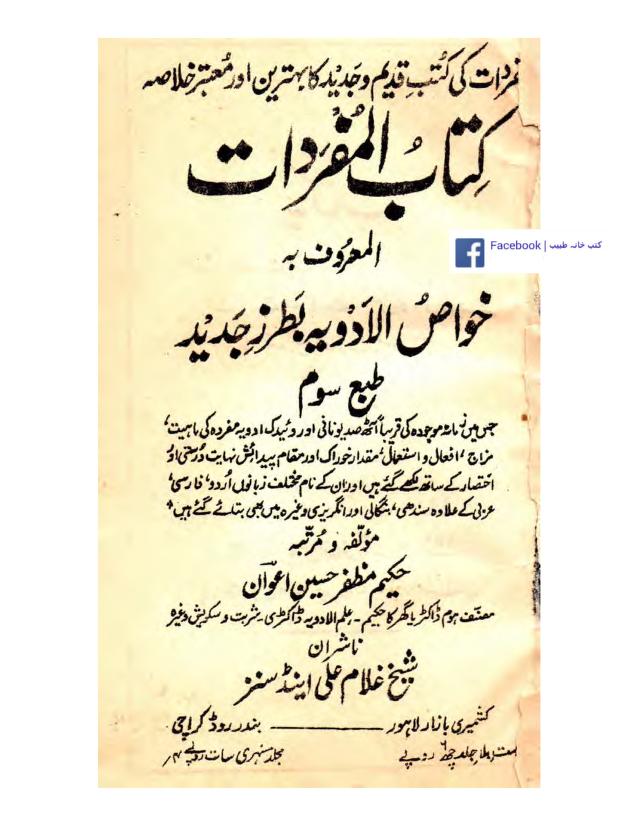 مفردات کی کتب قدیم و جدید کا بہترین اور معتبر خلاصہ
کِتابُ المُفرَدات
المعرُوف بہ
Facebook | کتب خانہ طبیب
خواصُ الاَدویہ بَطرزِ جَدید
طبع سوم
جس میں زمانہ موجودہ کی قریباً آٹھ صد یونانی اور ویدک ادویہ مفردہ کی ماہیت،
مزاج، افعال و استعمال، مقدار خوراک اور مقام پیدائش نہایت درستی اور
اختصار کے ساتھ لکھے گئے ہیں اور ان کے نام مختلف زبانوں اُردو، فارسی،
عربی کے علاوہ سندھی، بنگالی اور انگریزی وغیرہ میں بھی بتائے گئے ہیں
مؤلفہ و مُرتبہ
حکیم مظفر حسین اعوان
مصنف ہوم ڈاکٹر یا گھر کا حکیم ۔ علم الادویہ ڈاکٹری ۔ شربت و سکویش وغیرہ
ناشران
شیخ غلام علی اینڈ سنز
کشمیری بازار لاہور ——— بندر روڈ کراچی
بلا جلد چھ ۶ روپے
مجلد سنہری سات روپے ۴/